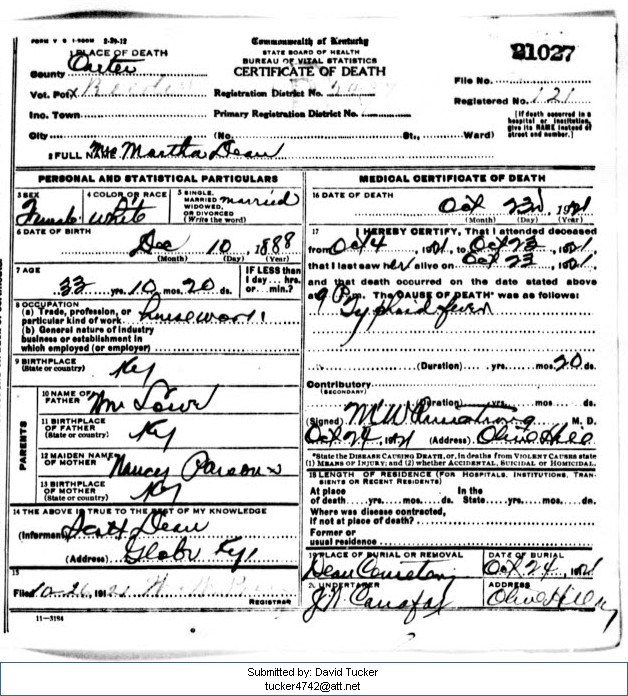 FORM V S 1-500M 2-20-12
Commonwealth of Kentucky
STATE BOARD OF HEALTH
BUREAU OF VITAL STATISTICS
CERTIFICATE OF DEATH
21027
1 PLACE OF DEATH
County Carter
Vot. Pct
Registration District No.
File No.
Inc. Town
Primary Registration District No.
Registered No. 121
City (No. St., Ward)
[If death occurred in a hospital or institution, give its NAME instead of street and number.]
2 FULL NAME Mrs Martha Dean
PERSONAL AND STATISTICAL PARTICULARS
3 SEX Female
4 COLOR OR RACE White
5 SINGLE, MARRIED, WIDOWED, OR DIVORCED (Write the word) married
6 DATE OF BIRTH Dec 10, 1888
(Month) (Day) (Year)
7 AGE 33 yrs. 10 mos. 20 ds.
IF LESS than 1 day... hrs. or... min.?
8 OCCUPATION
(a) Trade, profession, or particular kind of work housework
(b) General nature of industry business or establishment in which employed (or employer)
9 BIRTHPLACE (State or country) Ky
PARENTS
10 NAME OF FATHER Wm
11 BIRTHPLACE OF FATHER (State or country) Ky
12 MAIDEN NAME OF MOTHER Nancy Parsons
13 BIRTHPLACE OF MOTHER (State or country) Ky
14 THE ABOVE IS TRUE TO THE BEST OF MY KNOWLEDGE
(Informant) Scott Dean
(Address) Globe Ky
15
Filed 10-26, 1921
REGISTRAR
11-3184
MEDICAL CERTIFICATE OF DEATH
16 DATE OF DEATH Oct 23, 1921
(Month) (Day) (Year)
17 I HEREBY CERTIFY, That I attended deceased
from Oct 4, 1921, to Oct 23, 1921,
that I last saw her alive on Oct 23, 1921,
and that death occurred on the date stated above
at 9 P.m. The CAUSE OF DEATH* was as follows:
Typhoid fever
(Duration) yrs. mos. 20 ds.
Contributory
(SECONDARY)
(Duration) yrs. mos. ds.
(Signed) M W Armstrong M. D.
Oct 24, 1921 (Address) Olive Hill
*State the DISEASE CAUSING DEATH, or, in deaths from VIOLENT CAUSES state
(1) MEANS OF INJURY; and (2) whether ACCIDENTAL, SUICIDAL OR HOMICIDAL.
18 LENGTH OF RESIDENCE (FOR HOSPITALS, INSTITUTIONS, TRANSIENTS OR RECENT RESIDENTS)
At place of death yrs. mos. ds.
In the State yrs. mos. ds.
Where was disease contracted,
if not at place of death?
Former or usual residence
19 PLACE OF BURIAL OR REMOVAL Dean Cemetery
DATE OF BURIAL Oct 24, 1921
20 UNDERTAKER
ADDRESS Olive Hill Ky
Submitted by: David Tucker
tucker4742@att.net